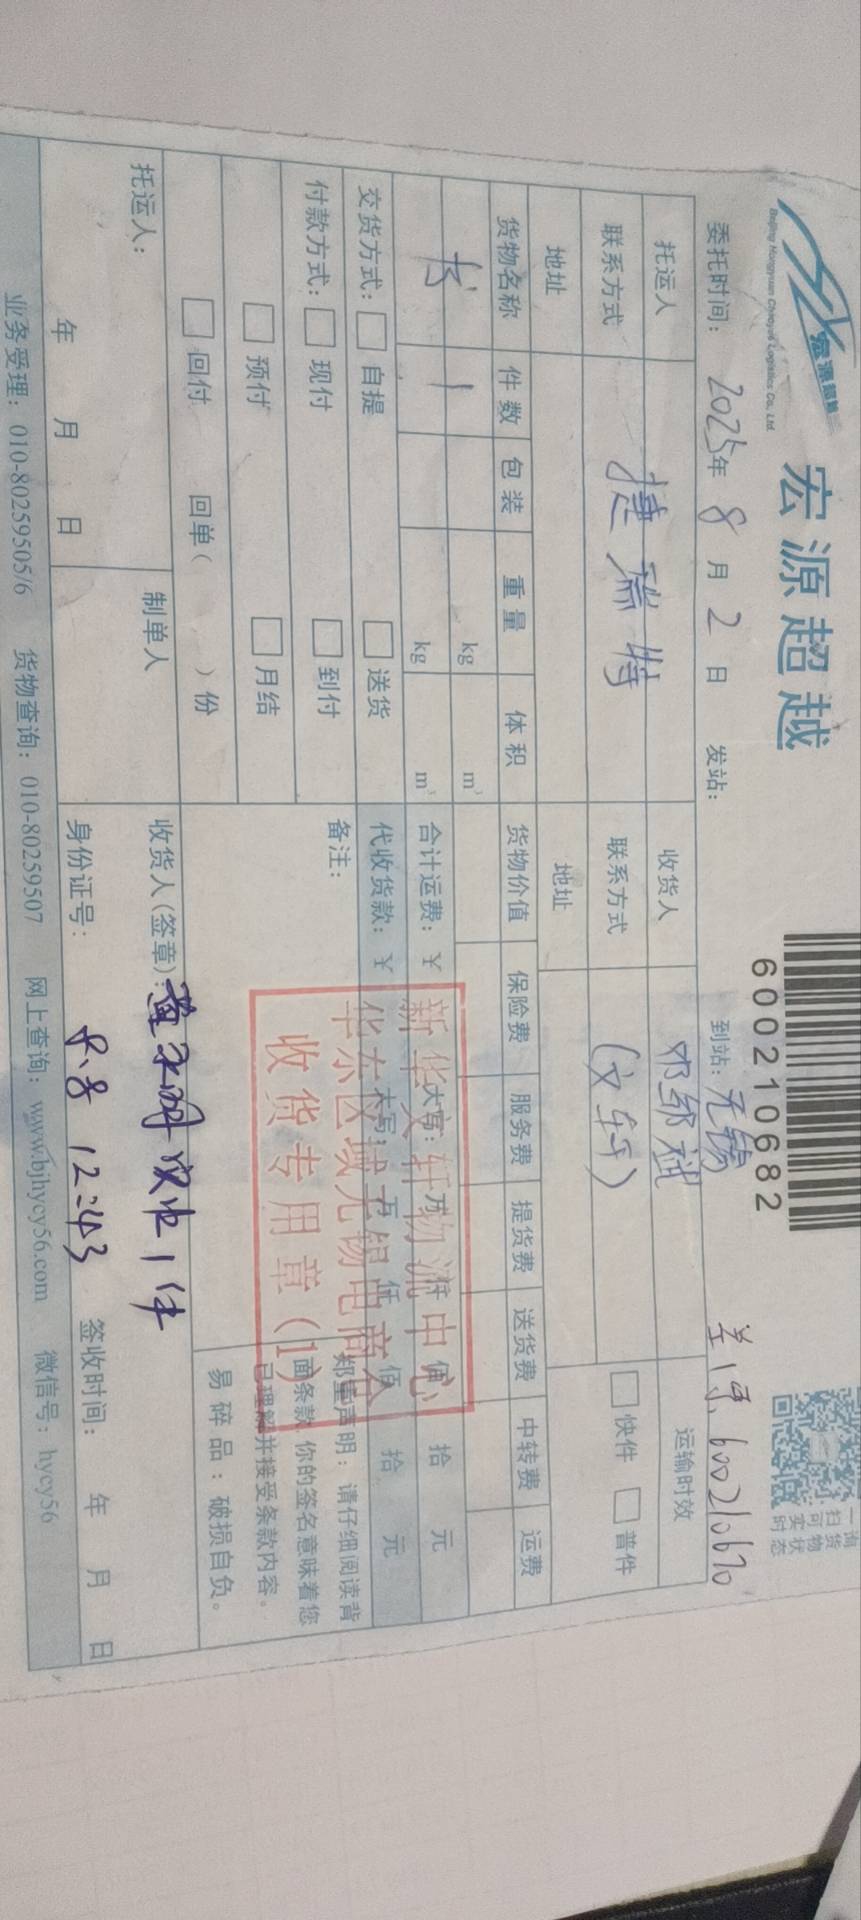 宏源超越
Beijing Hongyuan Chaoyue Logistics Co., Ltd.
宏源超越
600210682
一询
扫货
可物
实状
时态
委托时间： 2025年 8月 2日 发站： 到站：无锡 600210670
托运人 捷瑞特 收货人 运输时效
联系方式 联系方式 (文轩) 快件 普件
地址 地址
货物名称 件数 包装 重量 体积 货物价值 保险费 服务费 提货费 送货费 中转费 运费
书 1 kg m³
kg m³ 合计运费：￥ 大写： 万 仟 佰 拾 元
交货方式： 自提 送货 代收货款：￥ 大写： 万 仟 佰 拾 元
付款方式： 现付 到付 备注：
预付 月结
回付 回单( )份
新华文轩物流中心
华东区域无锡电商仓
收货专用章(1)
郑重声明：请仔细阅读背
面条款 你的签名意味着您
已理解并接受条款内容。
易碎品：破损自负。
托运人： 制单人 收货人(签章)： 收书1件
年 月 日 身份证号： 8.8 12:43 签收时间： 年 月 日
业务受理：010-80259505/6 货物查询：010-80259507 网上查询：www.bjhycy56.com 微信号：hycy56